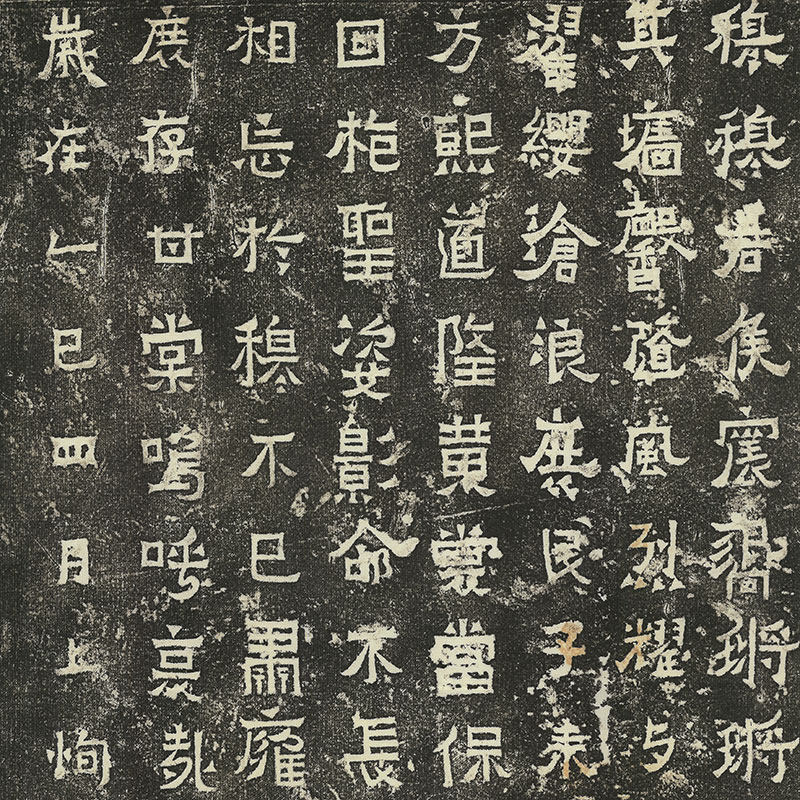 穆穆君侯震響鏘鏘
其墻馨隨風烈耀与
濯纓滄浪庶民子来
方熙道隆黄裳當保
回抱聖姿影命不長
相忘於穆不已肅雍
庶存甘棠嗚呼哀哉
歲在乙巳四月上恂